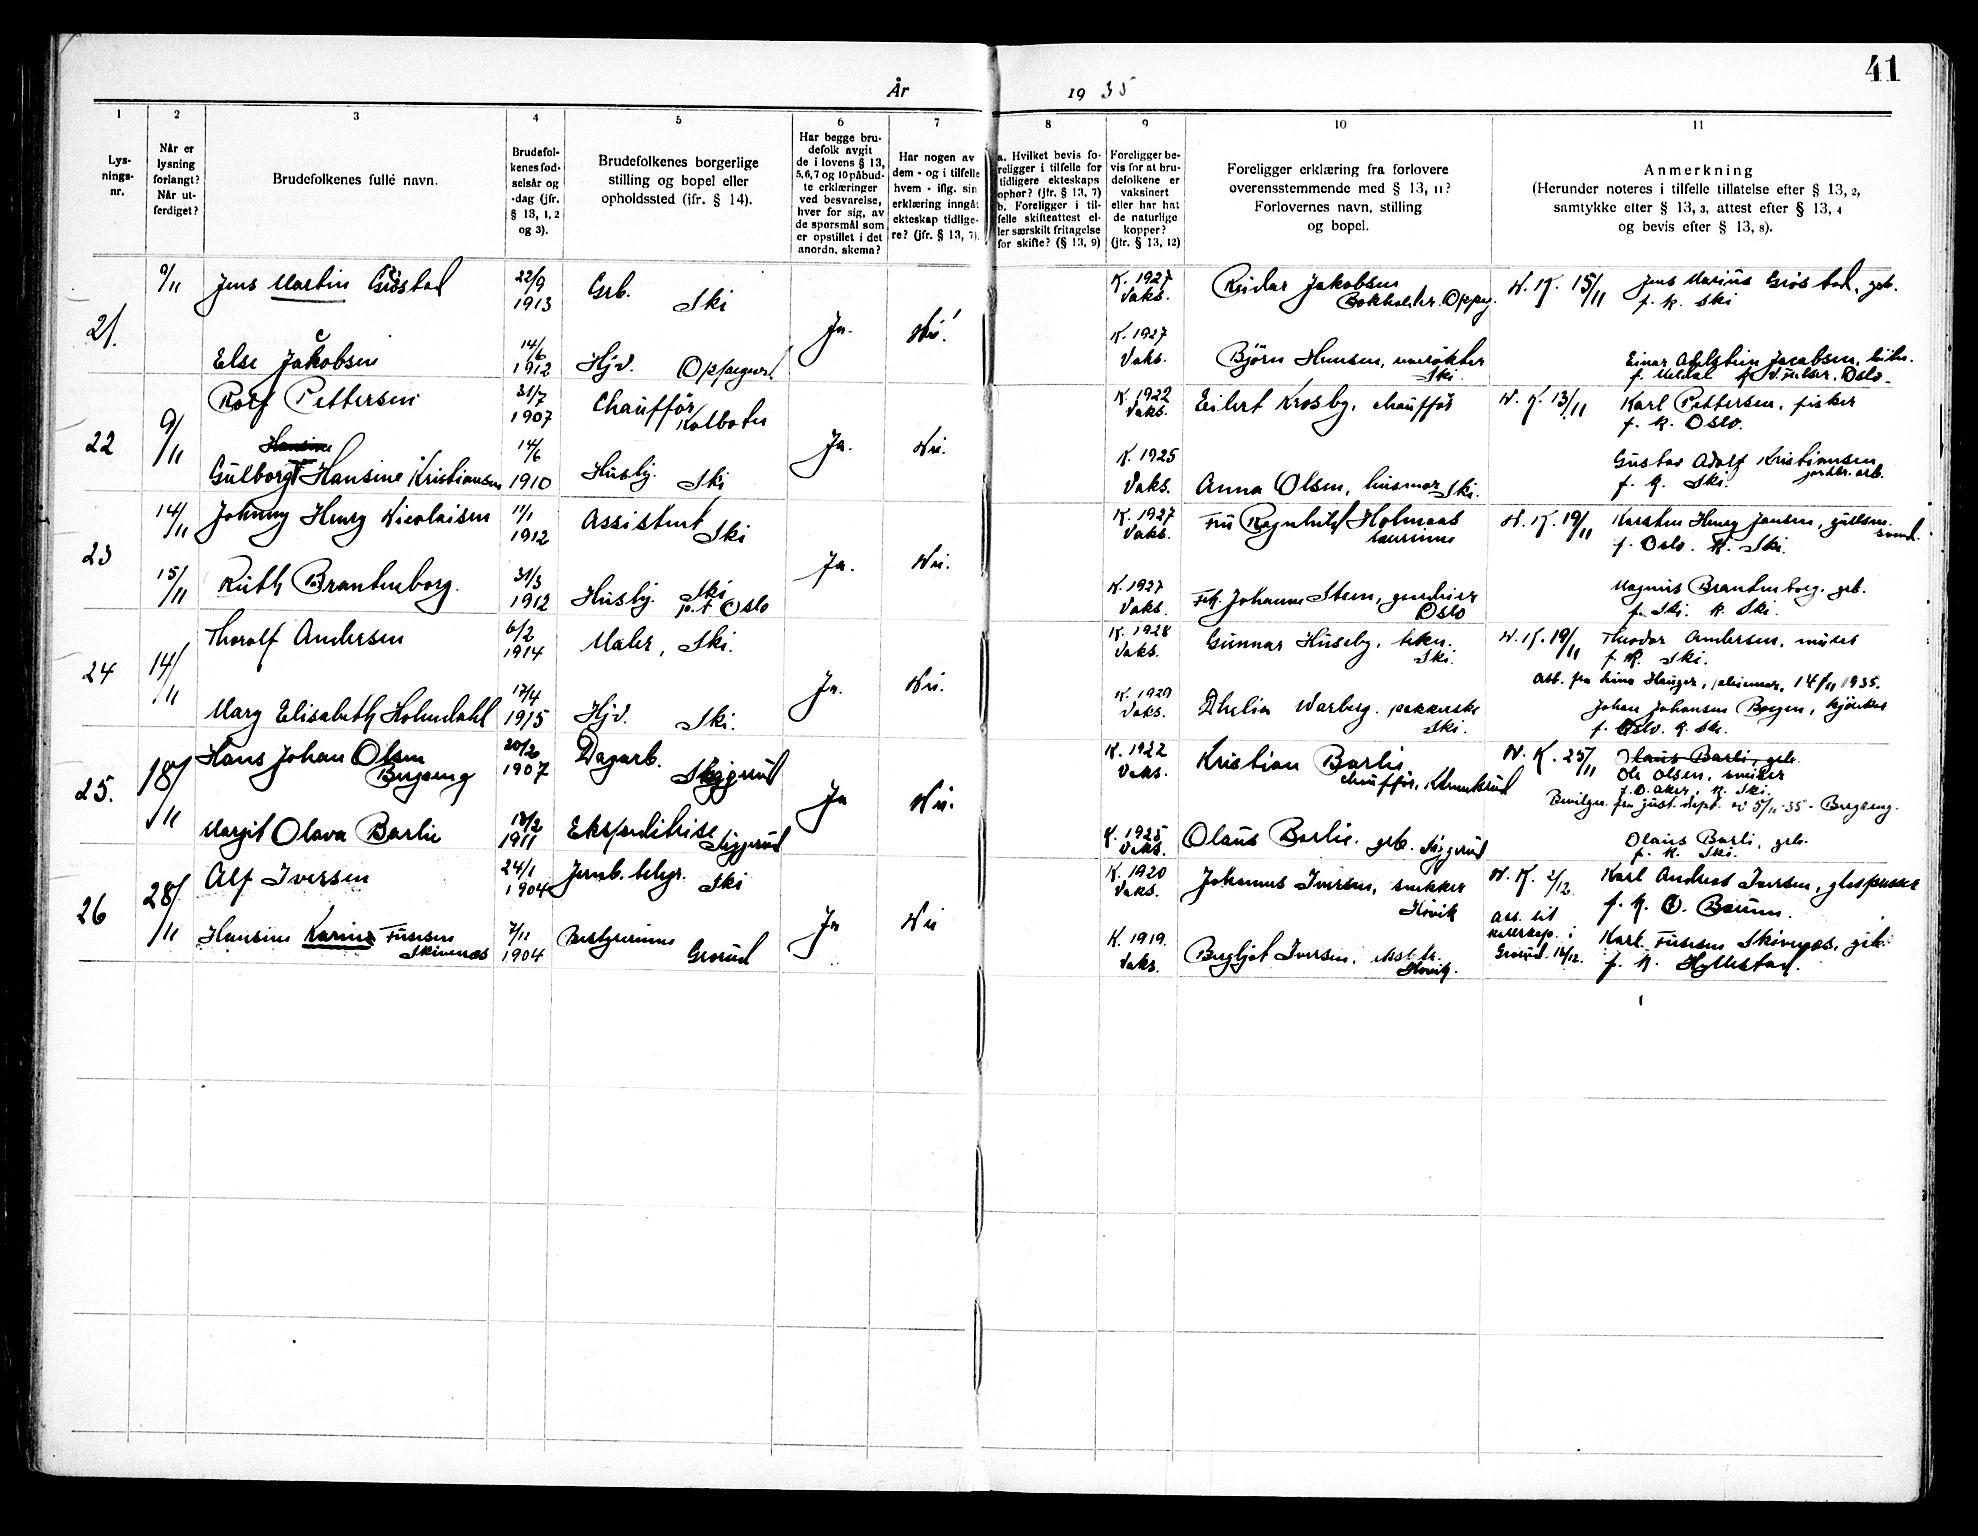 41
År
19 35
1
2
3
4
5
6
7
8
9
10
11
Lys-
nings-
nr.
Når er
lysning
forlangt?
Når ut-
ferdiget?
Brudefolkenes fulle navn.
Brudefol-
kenes fød-
selsår og
-dag (jfr.
§ 13, 1, 2
og 3).
Brudefolkenes borgerlige
stilling og bopel eller
opholdssted (ifr. § 14).
Har begge bru-
defolk avgit
de i lovens § 13,
5,6,7 og 10 påbud-
te erklæringer
ved besvarelse,
hver for sig, av
de spørsmål som
er opstillet i det
anordn. skema?
Har nogen av
dem - og i tilfelle
hvem - iflg. sin
erklæring inngåt
ekteskap tidlige-
re? (jfr. § 13, 7).
a. Hvilket bevis fo-
religger i tilfelle for
tidligere ekteskaps
ophør? (jfr. § 13, 7)
b. Foreligger i til-
felle skifteattest el-
ler særskilt fritagelse
for skifte? (§ 13, 9)
Foreligger be-
vis for at bru-
defolkene er
vaksinert
eller har hat
de naturlige
kopper?
(jfr. § 13, 12)
Foreligger erklæring fra forlovere
overensstemmende med § 13, 11?
Forlovernes navn, stilling
og bopel.
Anmerkning
(Herunder noteres i tilfelle tillatelse efter § 13, 2,
samtykke efter § 13, 3, attest efter § 13, 4
og bevis efter § 13, 8).
21.
9/11
Jens Martin Grøstad
22/9
1913
Grb.
Ski
Ja.
Nei!
K. 1927
Vaks.
Reidar Jakobsen
Bokholder. Oppeg.
N. K. 15/11
Jens Marius Grøstad, grb.
f. k. Ski
Else Jakobsen
c
14/6
1912
Hjv.
Oppegård
K. 1927
Vaks.
Björn Hansen, murøkter
Ski.
Einar Jacobsen,
Oslo.
22
9/11
Rolf Pettersen
31/7
1907
Chaufför
Kolbotn
Ja.
Nei.
K. 1922
Vaks.
Eilert Krosby, chaufför
N. K. 13/11
Karl Pettersen, fisker
f. k. Oslo.
Hansine
Gulborg Hansine Kristiansen
14/6
1910
Husby.
Ski
K. 1925
Vaks.
Anna Olsen, husmor Ski.
Gustav Adolf Kristiansen
jordbr. arb.
f. k. Ski.
23
14/11
Johnny Henry Nicolaisen
11/1
1912
Assistent
Ski
Ja.
Nei.
K. 1927
Vaks.
Fru Ragnhild Holmaas
lærerinne
N. K. 19/11
Karsten Henry Jansen, gullsm.
svend.
f. Oslo. k. Ski.
15/11
Ruth Brantenborg.
31/3
1912
Husby. Ski
p.t Oslo
K. 1927
Vaks.
Frk. Johanne Steen,
Oslo
Magnus Brantenborg, grb.
f. Ski. k. Ski.
24
14/11
Thorolf Andersen
6/2
1914
Maler, Ski.
Ja.
Nei.
K. 1928
Vaks.
Gunnar Huseby, tekn.
Ski.
N. K. 19/11
Theodor Andersen, murer
f. k. Ski.
Att. fra 14/11 1935.
Mary Elisabeth Holmdahl
17/4
1915
Hjv.
Ski.
K. 1929
Vaks.
Thelia Warberg, pakkerske
Ski.
Johan Johansen Borgen,
f. Oslo. k. Ski.
25.
18/11
Hans Johan Olsen
Bergseng
20/2
1907
Dagarb.
Siggerud
Ja
Nei.
K. 1922
Vaks.
Kristian Barlie
chaufför, Klemetsrud
N. K. 25/11
Olaus Barli, grb.
Ole Olsen, smier
f. Ø. Aker, k. Ski.
Bevilgn. fra just. dept. av 5/11-35 - Bergseng.
Margit Olava Barlie
18/2
1911
Ekspeditrise
Siggerud
K. 1925
Vaks.
Olaus Barlie. grb. Siggerud
Olaus Barli, grb.
f. k. Ski.
26
28/11
Alf Iversen
24/1
1904
Jernb. betjr.
Ski
Ja
Nei
K. 1920
Vaks.
Johannes Iversen, snekker
Høvik
N. K. 2/12.
Karl Andreas Iversen, glaspusser
f. k. Ø. Bærum.
Hansine Karine Furesen
Skivenæs
7/11
1904
Bestyrerinne
Grorud
K. 1919.
Vaks.
Bergljot Iversen,
Høvik.
Att. til
ektesk. i
Grorud 14/12.
Karl Furesen Skivenæs, grb.
f. k. Hyllestad.